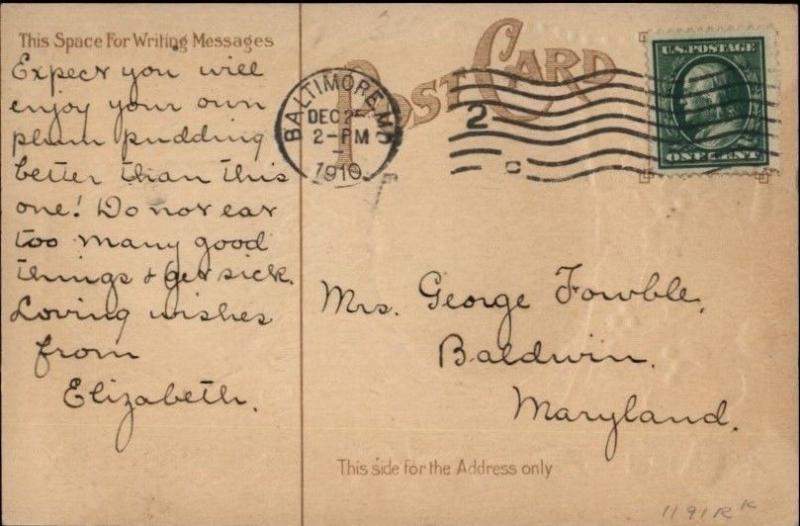 This Space For Writing Messages
Expect you will
enjoy your own
plum pudding
better than this
one! Do not eat
too many good
things & get sick.
Loving wishes
from
Elizabeth.
POST CARD
BALTIMORE, MD
DEC 2
2-PM
1910
2
U.S. POSTAGE
ONE CENT
Mrs. George Fowble,
Baldwin.
Maryland.
This side for the Address only
1191RK